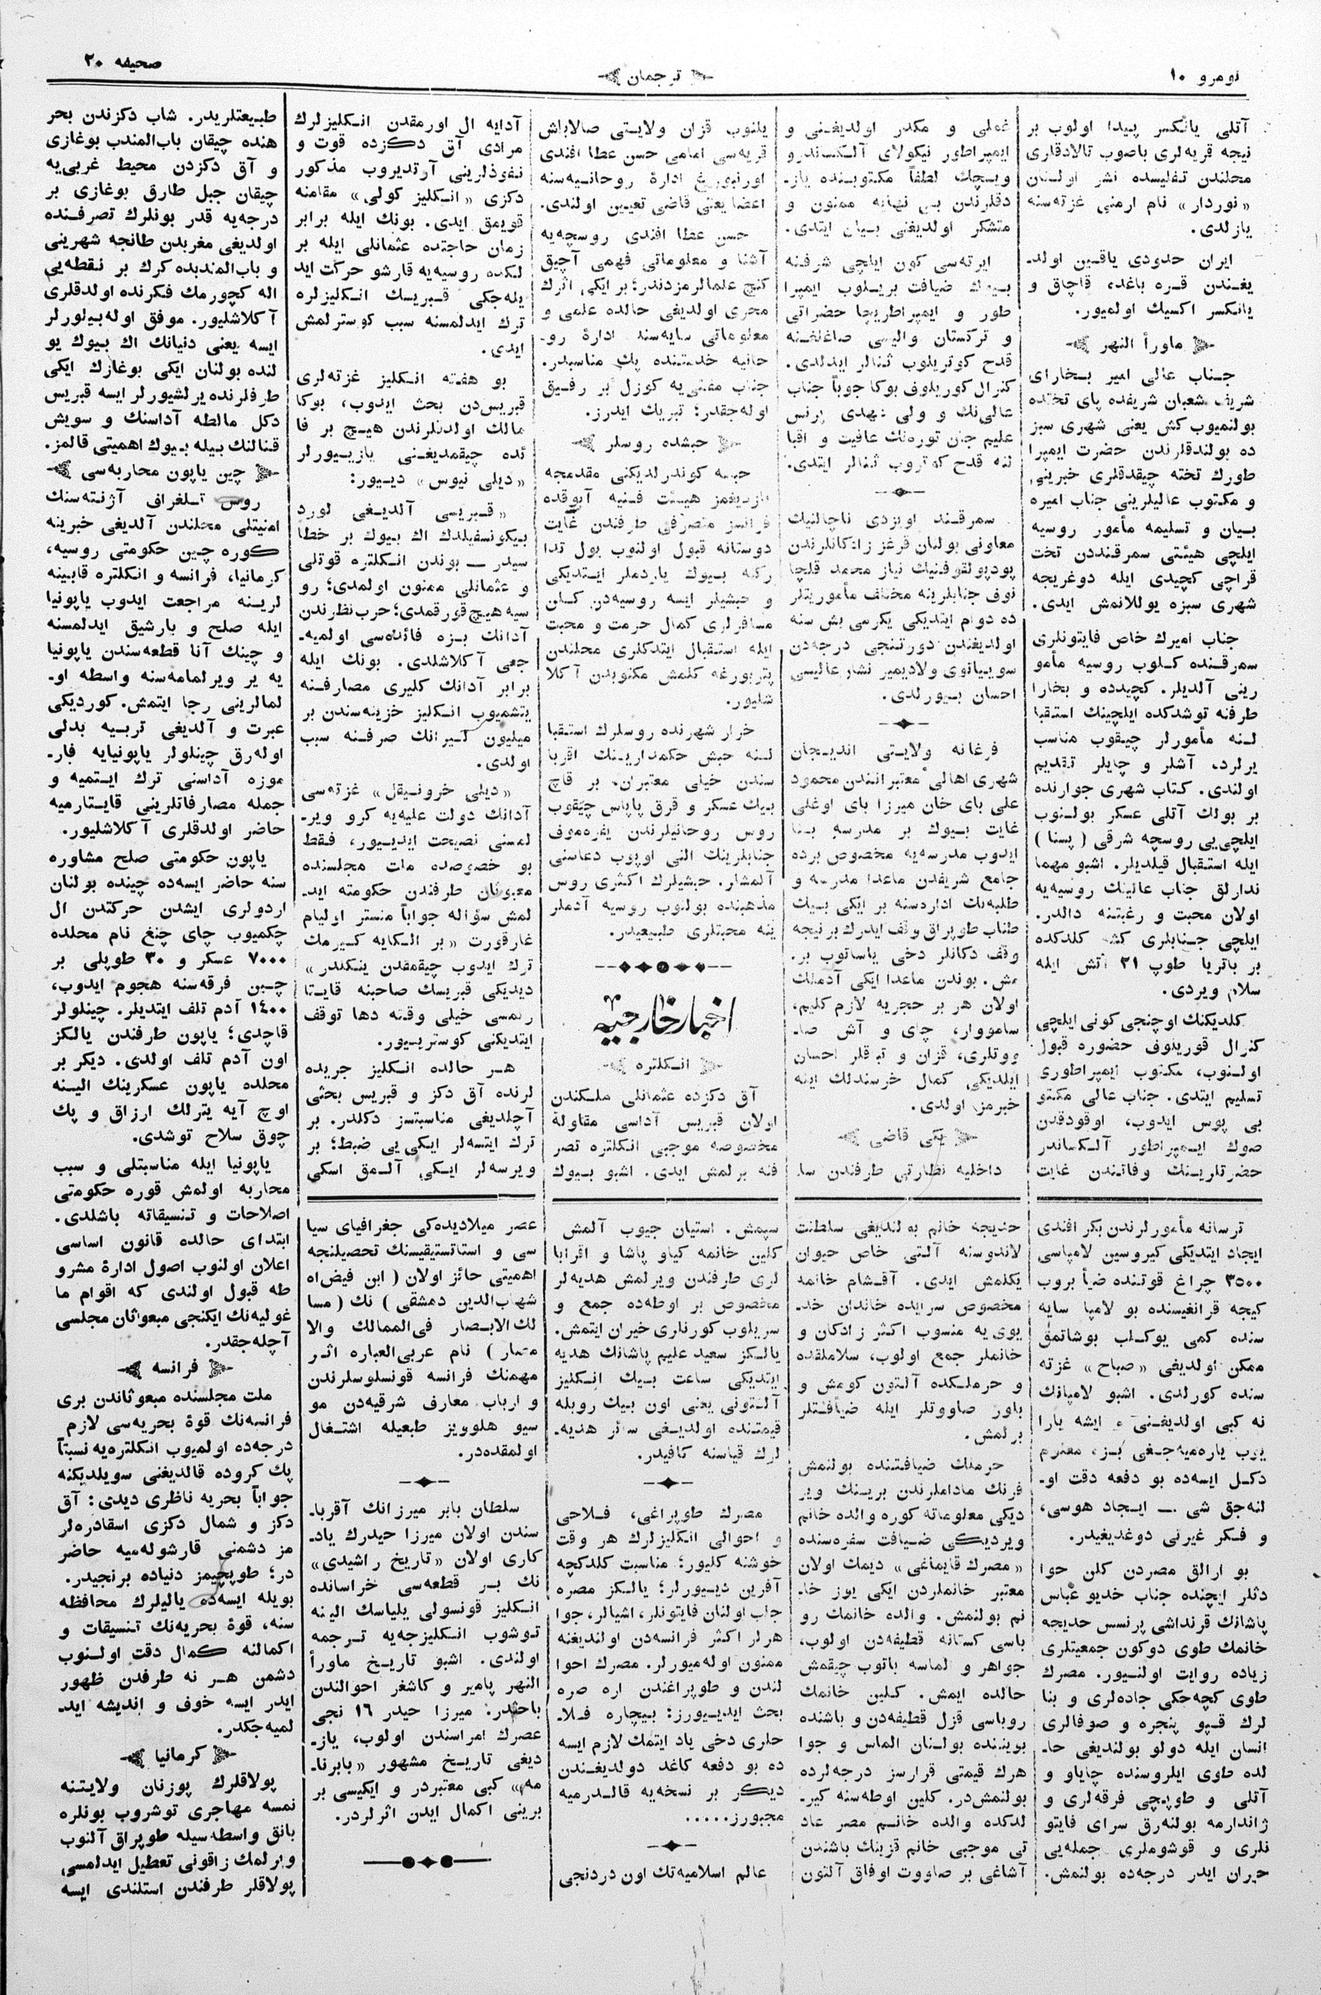 نومرو ١٠
ترجمان
صحیفه ٢٠
آتلی یانکسر پیدا اولوب بر
نیچه قریه‌لری باصوب تالادقلری
محلندن تفلیسده نشر اولنان
«نوردار» نام ارمنی غزته‌سنه
یازلدی.
ایران حدودی یاقین اولد-
یغندن قره باغده، قاچاق و
یانکسر اکسیک اولمیور.
ماورأ النهر
جناب عالی امیر بخارای
شریف شعبان شریفده پای تختده
بولنمیوب کش یعنی شهری سبز
ده بولندقلرندن حضرت ایمپرا
طورك تخته چیقدقلری خبرینی
و مکتوب عالیلرینی جناب امیره
بیان و تسلیمه مأمور روسیه
ایلچی هیئتی سمرقنددن تخت
قراچی کچیدی ایله دوغریجه
شهری سبزه یوللانمش ایدی.
جناب امیرك خاص فایتونلری
سمرقنده کلوب روسیه مأمو
رینی آلدیلر. کچیدده و بخارا
طرفنه توشدکده ایلچینك استقبا
لنه مأمورلر چیقوب مناسب
یرلرده آشلر و چایلر تقدیم
اولندی. کتاب شهری جوارنده
بر بولك آتلی عسکر بولنوب
ایلچی‌یی روسچه شرقی (پسنا)
ایله استقبال قیلدیلر. اشبو مهما
ندارلق جناب عالینك روسیه‌یه
اولان محبت و رغبتنه دالدر.
ایلچی جنابلری کشه کلدکده
بر باتریا طوپ ٢١ آتش ایله
سلام ویردی.
کلدیکنك اوچنجی کونی ایلچی
کنرال قوریلوف حضوره قبول
اولنوب، مکتوب ایمپراطوری
تسلیم ایتدی. جناب عالی مکتو
بی پوس ایدوب، اوقودقدن
صوك ایمپراطور آلکساندر
حضرتلرینك وفاتندن غایت
غملی و مکدر اولدیغنی و
ایمپراطور نیکولای آلکساندرو
ویچك لطفاً مکتوبنده یاز-
دقلرندن بی نهایه ممنون و
متشکر اولدیغنی بیان ایتدی.
ایرته‌سی کون ایلچی شرفنه
بیوك ضیافت بریلوب ایمپرا
طور و ایمپراطریچا حضراتی
و ترکستان والیسی صاغلغنه
قدح کوتریلوب ثنالر ایدلدی.
کنرال کوریلوف بوکا جوباً جناب
عالی‌نك و ولی عهدی پرنس
علیم جان توره‌نك عافیت و اقبا
لنه قدح کوتروب ثنالر ایتدی.
سمرقند اویزدی ناچالنیك
معاونی بولنان قرغز زادکانلرندن
پودپولقوفنیك نیاز محمد قلچا
نوف جنابلرینه مختلف مأموریتلر
ده دوام ایتدیکی یکرمی بش سنه
اولدیغندن دورتنجی درجه‌دن
سویاتوی ولادیمیر نشار عالیسی
احسان بیورلدی.
فرغانه ولایتی اندیجان
شهری اهالی معتبرانندن محمود
علی بای خان میرزا بای اوغلی
غایت بیوك بر مدرسه بنا
ایدوب مدرسه‌یه مخصوص برده
جامع شریفدن ماعدا مدرسه و
طلبه‌نك اداره‌سنه بر ایکی بیك
طناب طوپراق وقف ایدرك بر نیجه
وقف دکانلر دخی یاساتوب بر-
مش. بوندن ماعدا ایکی آدملك
اولان هر بر حجریه لازم کلیم،
ساموار، چای و آش صا-
ووتلری، قزان و تبقلر احسان
ایلدیکی کمال خرسندلك ایله
خبرمز اولدی.
یکی قاضی
داخلیه نظارتی طرفندن سا
یلنوب قزان ولایتی صالاباش
قریه‌سی امامی حسن عطا افندی
اورنبورغ ادارهٔ روحانیه‌سنه
اعضا یعنی قاضی تعیین اولندی.
حسن عطا افندی روسچه‌یه
آشنا و معلوماتی فهمی آچیق
کنج علمالرمزدندر؛ بر ایکی اثرك
محرری اولدیغی حالده علمی و
معلوماتی سایه‌سند ادارهٔ رو-
حانیه خدمتنده پك مناسبدر.
جناب مفتی‌یه کوزل بر رفیق
اوله‌جقدر؛ تبریك ایدرز.
حبشده روسلر
حبشه کوندرلدیکنی مقدمجه
یازدیغمز هیئت فنیه آبوقده
فرانسز متصرفی طرفندن غایت
دوستانه قبول اولنوب یول تدا
رکنه بیوك یاردملر ایتدیکی
و حبشیلر ایسه روسیه‌دن کلن
مسافرلری کمال حرمت و محبت
ایله استقبال ایتدکلری محلندن
پتربورغه کلمش مکتوبدن آکلا
شلیور.
خرار شهرنده روسلرك استقبا
لنه حبش حکمدارینك اقربا
سندن خیلی معتبران، بر قاچ
بیك عسکر و قرق پاپاس چیقوب
روس روحانیلرندن یفره‌موف
جنابلرینك النی اوپوب دعاسنی
آلمشلر. حبشیلرك اکثری روس
مذهبنده بولنوب روسیه آدملر
ینه محبتلری طبیعیدر.
اخبار خارجیه
انکلتره
آق دکزده عثمانلی ملکندن
اولان قبریس آداسی مقاولهٔ
مخصوصه موجبی انکلتره تصر
فنه برلمش ایدی. اشبو بیوك
آدایه ال اورمقدن انکلیزلرك
مرادی آق دکزده قوت و
نفوذلرینی آرتدیروب مذکور
دکزی «انکلیز کولی» مقامنه
قویمق ایدی. بونك ایله برابر
زمان حاجتده عثمانلی ایله بر
لکده روسیه‌یه قارشو حرکت اید
یله‌جکی قبریسك انکلیزلره
ترك ایدلمسنه سبب کوسترلمش
ایدی.
بو هفته انکلیز غزته‌لری
قبریس‌دن بحث ایدوب، بوکا
مالك اولدنلرندن هیچ بر فا
ئده چیقمدیغنی یازیورلر
«دیلی نیوس» دیور:
«قبریسی آلدیغی لورد
بیکونسفیلدك اك بیوك بر خطا
سیدر — بوندن انکلتره قوتلی
و عثمانلی ممنون اولمدی؛ رو
سیه هیچ قورقمدی؛ حرب نظرندن
آدانك بزه فائده‌سی اولمیه-
جغی آکلاشلدی. بونك ایله
برابر آدانك کلیری مصارفنه
یتشمیوب انکلیز خزینه‌سندن بر
میلیون لیرانك صرفنه سبب
اولدی.
«دیلی خرونیقل» غزته‌سی
آدانك دولت علیه‌یه کرو ویر-
لمسنی نصیحت ایدیور، فقط
بو خصوصده ملت مجلسنده
مبعوثان طرفندن حکومته اید-
لمش سؤاله جواباً منستر اولیام
غارقورت «بر الکایه کیرمك
ترك ایدوب چیقمقدن ینکلدر»
دیدیکی قبریسك صاحبنه قایتا
رلمسی خیلی وقته دها توقف
ایتدیکنی کوستریور.
هر حالده انکلیز جریده
لرنده آق دکز و قبریس بحثی
آچلدیغی مناسبتسز دکلدر. بر
ترك ایتسه‌لر ایکی‌یی ضبط؛ بر
ویرسه‌لر ایکی آلمق اسکی
طبیعتلریدر. شاب دکزندن بحر
هنده چیقان باب‌المندب بوغازی
و آق دکزدن محیط غربی‌یه
چیقان جبل طارق بوغازی بر
درجه‌یه قدر بونلرك تصرفنده
اولدیغی مغربدن طانجه شهرینی
و باب‌المندبده کرك بر نقطه‌یی
اله کچورمك فکرنده اولدقلری
آکلاشلیور. موفق اوله‌بیلورلر
ایسه یعنی دنیانك اك بیوك یو
لنده بولنان ایکی بوغازك ایکی
طرفلرنده یرلشیورلر ایسه قبریس
دکل مالطه آداسنك و سویش
قنالنك بیله بیوك اهمیتی قالمز.
چین یاپون محاربه‌سی
روس تلغراف آژنته‌سنك
امنیتلی محلندن آلدیغی خبرینه
کوره چین حکومتی روسیه،
کرمانیا، فرانسه و انکلتره قابینه
لرینه مراجعت ایدوب یاپونیا
ایله صلح و بارشیق ایدلمسنه
و چینك آنا قطعه‌سندن یاپونیا
یه یر ویرلمامه‌سنه واسطه او-
لمالرینی رجا ایتمش. کوردیکی
عبرت و آلدیغی تربیه بدلی
اوله‌رق چینلولر یاپونیایه فار-
موزه آداسنی ترك ایتمیه و
جمله مصارفاتلرینی قایتارمیه
حاضر اولدقلری آکلاشلیور.
یاپون حکومتی صلح مشاوره
سنه حاضر ایسه‌ده چینده بولنان
اردولری ایشدن حرکتدن ال
چکمیوب چای چنغ نام محلده
٧٠٠٠ عسکر و ٣٠ طوپلی بر
چین فرقه‌سنه هجوم ایدوب،
١٤٠٠ آدم تلف ایتدیلر. چینلولر
قاچدی؛ یاپون طرفندن یالکز
اون آدم تلف اولدی. دیکر بر
محلده یاپون عسکرینك الینه
اوچ آیه یترلك ارزاق و پك
چوق سلاح توشدی.
یاپونیا ایله مناسبتلی و سبب
محاربه اولمش قوره حکومتی
اصلاحات و تنسیقاته باشلدی.
ابتدای حالده قانون اساسی
اعلان اولنوب اصول ادارهٔ مشرو
طه قبول اولندی که اقوام ما
غولیه‌نك ایکنجی مبعوثان مجلسی
آچله‌جقدر.
فرانسه
ملت مجلسنده مبعوثاندن بری
فرانسه‌نك قوهٔ بحریه‌سی لازم
درجه‌ده اولمیوب انکلتره‌یه نسبتاً
پك کروده قالدیغنی سویلدیکنه
جواباً بحریه ناظری دیدی: آق
دکز و شمال دکزی اسقادره‌لر
مز دشمنی قارشوله‌میه حاضر
در؛ طوپچیمز دنیاده برنجیدر.
بویله ایسه‌ده یالیلرك محافظه
سنه، قوهٔ بحریه‌نك تنسیقات و
اکمالنه کمال دقت اولنوب
دشمن هر نه طرفدن ظهور
ایدر ایسه خوف و اندیشه اید-
لمیه‌جکدر.
کرمانیا
پولاقلرك پوزنان ولایتنه
نمسه مهاجری توشروب بونلره
بانق واسطه‌سیله طوپراق آلنوب
ویرلمك زاقونی تعطیل ایدلمسی
پولاقلر طرفندن استلندی ایسه
ترسانه مأمورلرندن بکر افندی
ایجاد ایتدیکی کیروسین لامپاسی
٣٥٠٠ چراغ قوتنده ضیأ بروب
کیجه قرانغیسنده بو لامپا سایه
سنده کمی یوکلب بوشاتمق
ممکن اولدیغی «صباح» غزته
سنده کورلدی. اشبو لامپانك
نه کبی اولدیغنی و ایشه یارا
یوب یاره‌میه‌جغی بز، معلوم
دکل ایسه‌ده بو دفعه دقت او-
لنه‌جق شی — ایجاد هوسی،
و فکر غیرتی دوغدیغیدر.
بو ارالق مصردن کلن حوا
دثلر ایچنده جناب خدیو عباس
پاشانك قرنداشی پرنسس خدیجه
خانمك طوی دوکون جمعیتلری
زیاده روایت اولنیور. مصرك
طوی کچه‌جکی جاده‌لری و بنا
لرك قپو پنجره و صوفالری
انسان ایله دولو بولندیغی حا-
لده طوی ایلروسنده چاپاو و
آتلی و طوپچی فرقه‌لری و
ژاندارمه بولنه‌رق سرای فایتو
نلری و قوشوملری جمله‌یی
حیران ایدر درجه‌ده بولنمش.
خدیجه خانم بولندیغی سلطنت
لاندوسنه آلتی خاص حیوان
یکلمش ایدی. آقشام خانمه
مخصوص سرایده خاندان خد-
یوی یه منسوب اکثر زادکان و
خانملر جمع اولوب، سلاملقده
و حرملکده آلتون کومش و
باور صاووتلر ایله ضیافتلر
برلمش.
حرملك ضیافتنده بولنمش
فرنك ماداملرندن برینك ویر
دیکی معلوماته کوره والده خانم
ویردیکی ضیافت سفره‌سنده
«مصرك قایماغی» دیمك اولان
معتبر خانملردن ایکی یوز خا-
نم بولنمش. والده خانمك رو
باسی کستانه قطیفه‌دن اولوب،
جواهر و الماسه باتوب چیقمش
حالده ایمش. کلین خانمك
روباسی قزل قطیفه‌دن و باشنده
بویننده بولنان الماس و جوا
هرك قیمتی قرارسز درجه‌لرده
بولنمش‌در. کلین اوطه‌سنه کیر-
لدکده والده خانم مصر عاد
تی موجبی خانم قزینك باشندن
آشاغی بر صاووت اوفاق آلتون
سپمش. استیان جیوب آلمش
کلین خانمه کیاو پاشا و اقربا
لری طرفندن ویرلمش هدیه‌لر
مخصوص بر اوطه‌ده جمع و
سریلوب کورنلری حیران ایتمش.
یالکز سعید علیم پاشانك هدیه
ایتدیکی ساعت بیك انکلیز
آلتونی یعنی اون بیك روبله
قیمتنده اولدیغی سائر هدیه-
لرك قیاسنه کافیدر.
مصرك طوپراغی، فلاحی
و احوالی انکلیزلرك هر وقت
خوشنه کلیور؛ مناسبت کلدکچه
آفرین دیورلر؛ یالکز مصره
جلب اولنان فایتونلر، اشیالر، جوا
هرلر اکثر فرانسه‌دن اولندیغنه
ممنون اوله‌میورلر. مصرك احوا
لندن و طوپراغندن اره صره
بحث ایدیورز: بیچاره فلا-
حلری دخی یاد ایتمك لازم ایسه
ده بو دفعه کاغد دولدیغندن
دیکر بر نسخه‌یه قالدرمیه
مجبورز.....
عالم اسلامیه‌نك اون دردنجی
عصر میلادیده‌کی جغرافیای سیا
سی و استاتستیقیسنك تحصیلنجه
اهمیتی حائز اولان (ابن فیض‌اه
شهاب‌الدین دمشقی) نك (مسا
لك‌الابصار فی‌الممالك والا
مصار) نام عربی‌العباره اثر
مهمنك فرانسه قونسلوسلرندن
و ارباب معارف شرقیه‌دن مو
سیو هلوویز طبعیله اشتغال
اولمقده‌در.
سلطان بابر میرزانك آقربا-
سندن اولان میرزا حیدرك یاد-
کاری اولان «تاریخ راشیدی»
نك بر قطعه‌سی خراسانده
انکلیز قونسولی یلیاسك الینه
توشوب انکلیزجه‌یه ترجمه
اولندی. اشبو تاریخ ماورأ
النهر پامیر و کاشغر احوالندن
باحثدر: میرزا حیدر ١٦ نجی
عصرك امراسندن اولوب، یاز-
دیغی تاریخ مشهور «بابرنا-
مه» کبی معتبردر و ایکیسی بر
برینی اکمال ایدن اثرلردر.